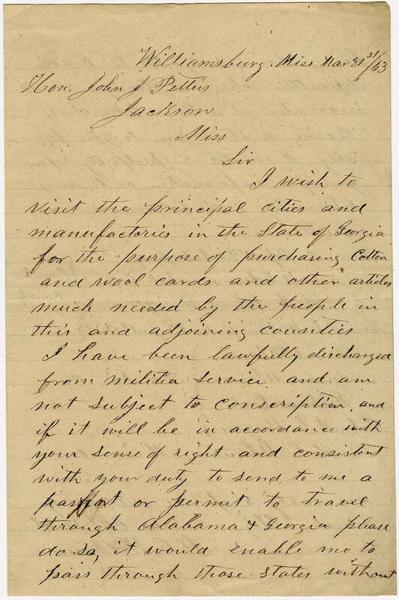 Williamsburg, Miss Mar 31st/63
Hon. John J Pettus
Jackson
Miss
Sir
I wish to
visit the principal cities and
manufactories in the State of Georgia
for the purpose of purchasing Cotton
and wool cards and other articles
much needed by the people in
this and adjoining counties
I have been lawfully discharged
from militia service and am
not subject to conscription, and
if it will be in accordance with
your sense of right and consistent
with your duty to send to me a
passport or permit to travel
through Alabama & Georgia please
do so, it would enable me to
pass through those States without